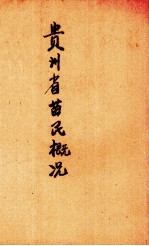 貴州省苗民概况